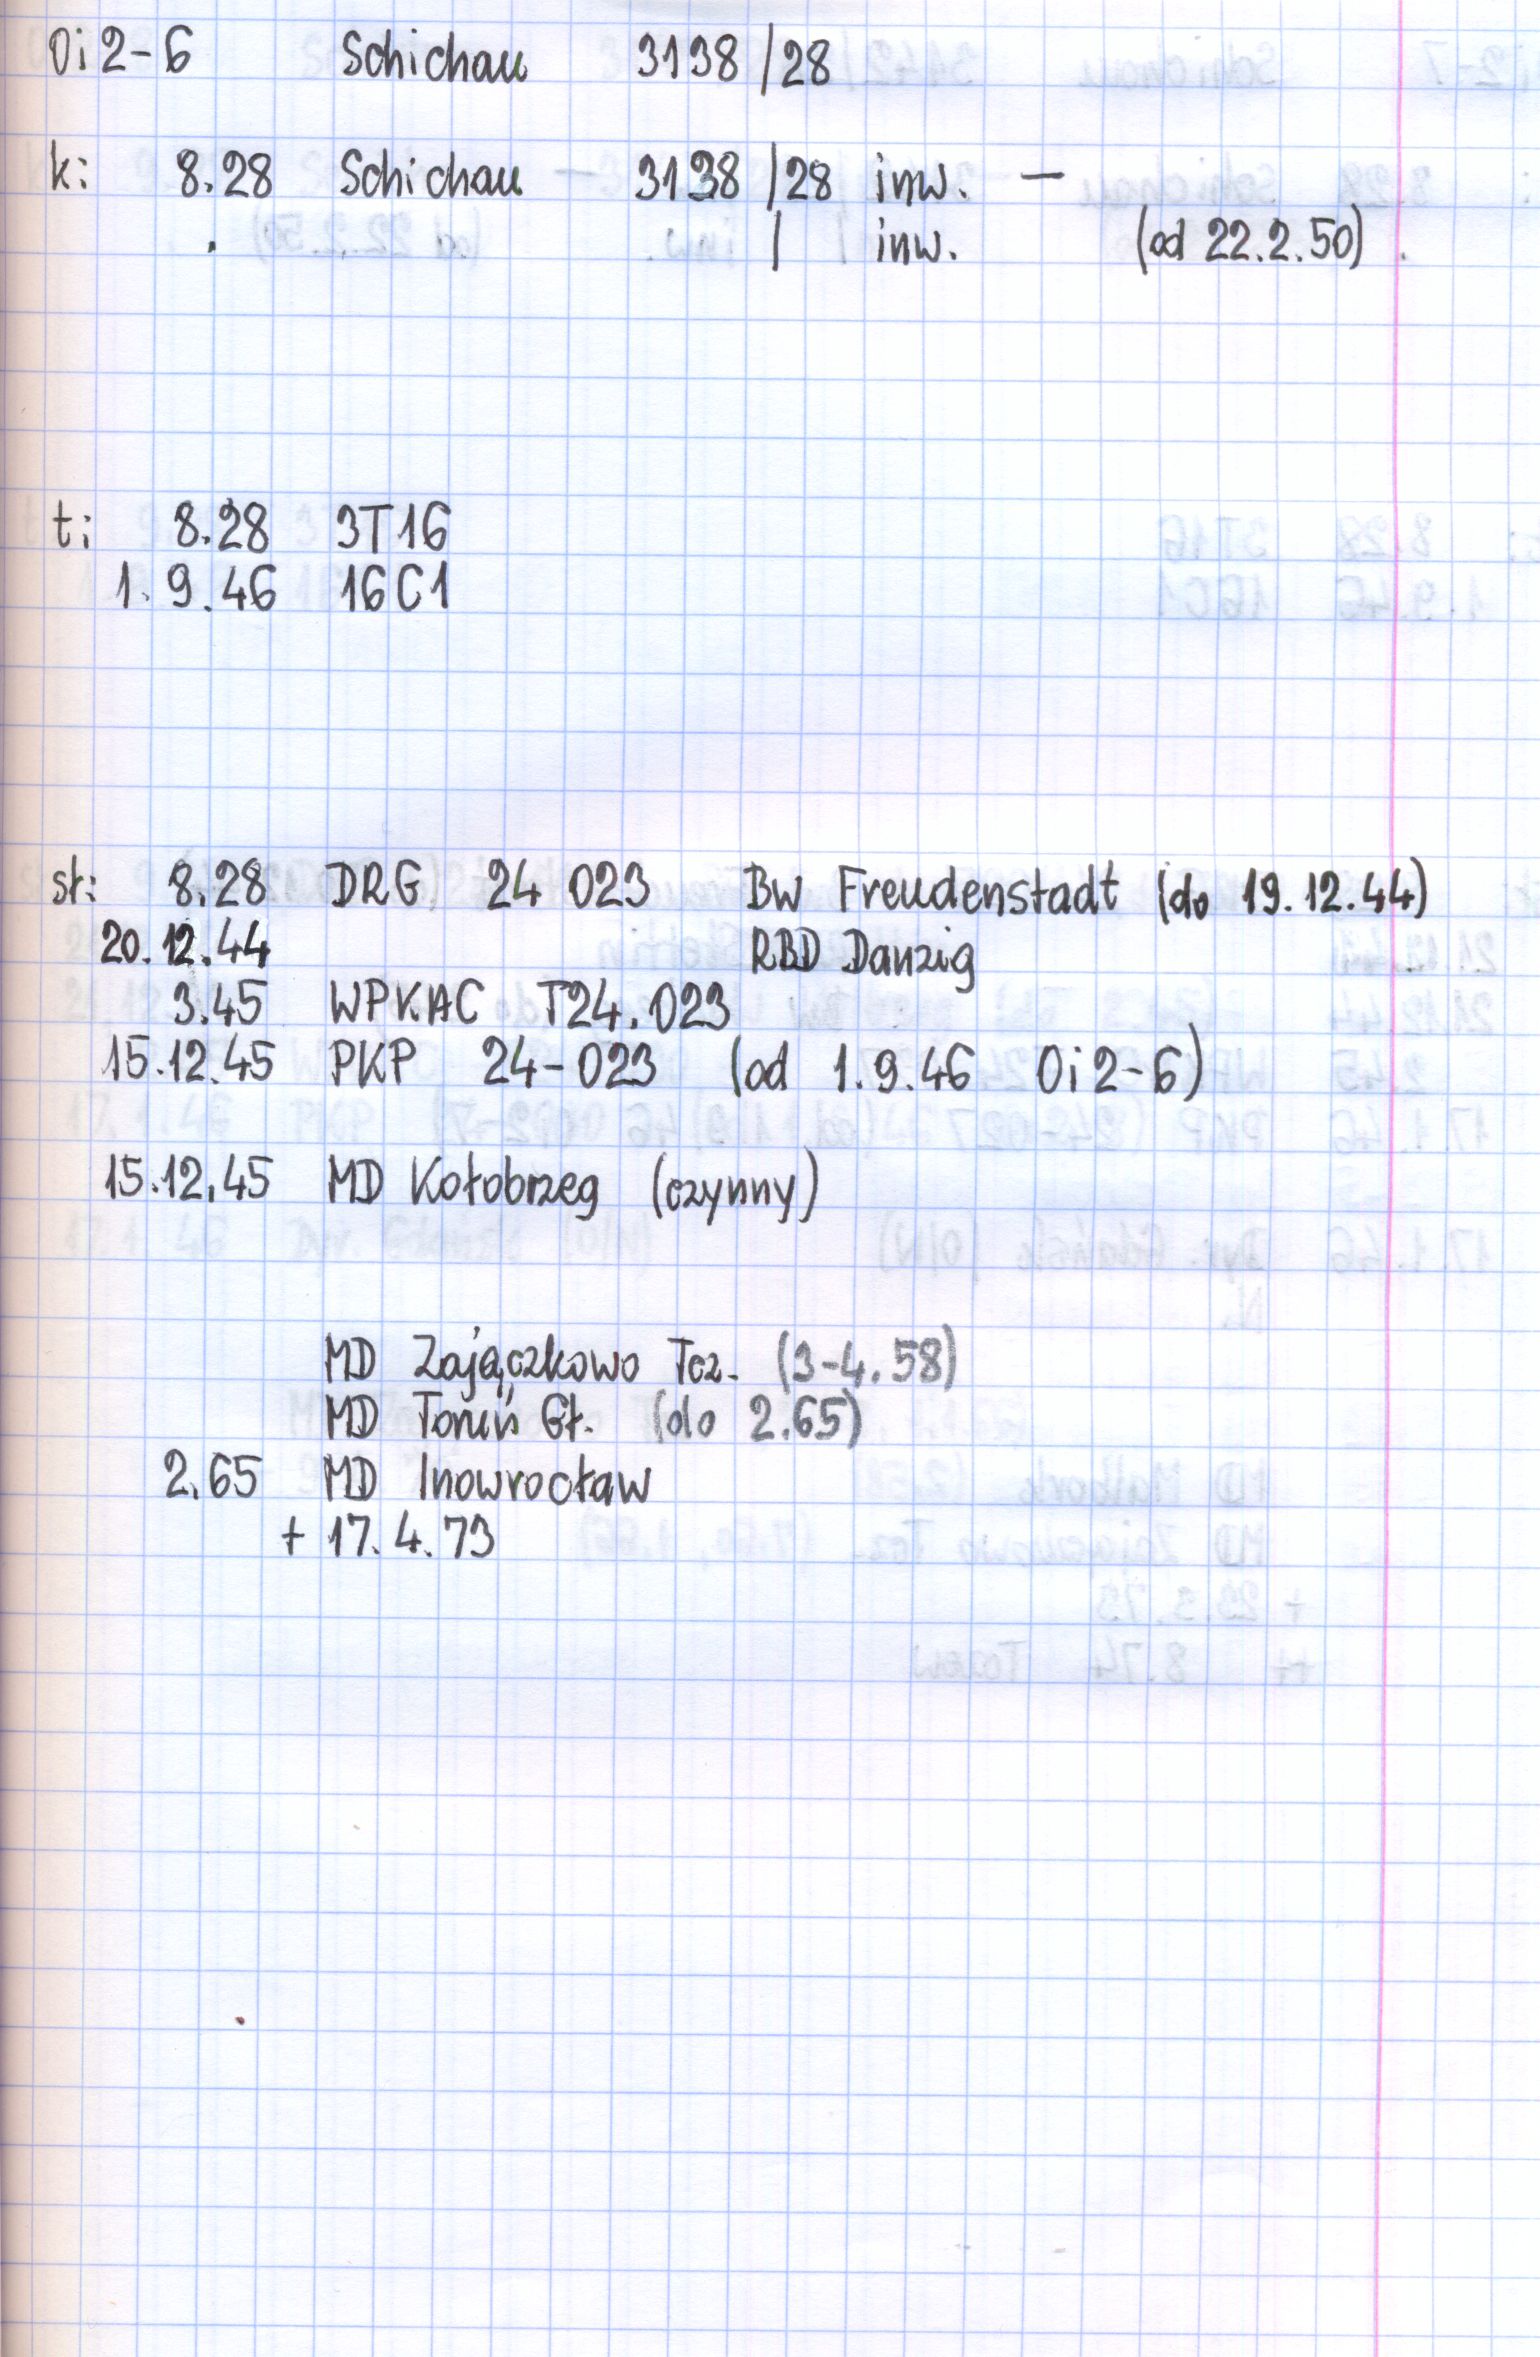 Oi2-6 Schichau 3138/28
k: 8.28 Schichau - 3138/28 inw. -
/ inw. (od 22.2.50)
t: 8.28 3T16
1.9.46 16C1
st: 8.28 DRG 24 023 BW Freudenstadt (do 19.12.44)
20.12.44 RBD Danzig
3.45 WPKAC T24.023
15.12.45 PKP 24-023 (od 1.9.46 Oi2-6)
15.12.45 MD Kołobrzeg (czynny)
MD Zajączkowo Tcz. (3-4.58)
MD Toruń Gł. (do 2.65)
2.65 MD Inowrocław
+ 17.4.73